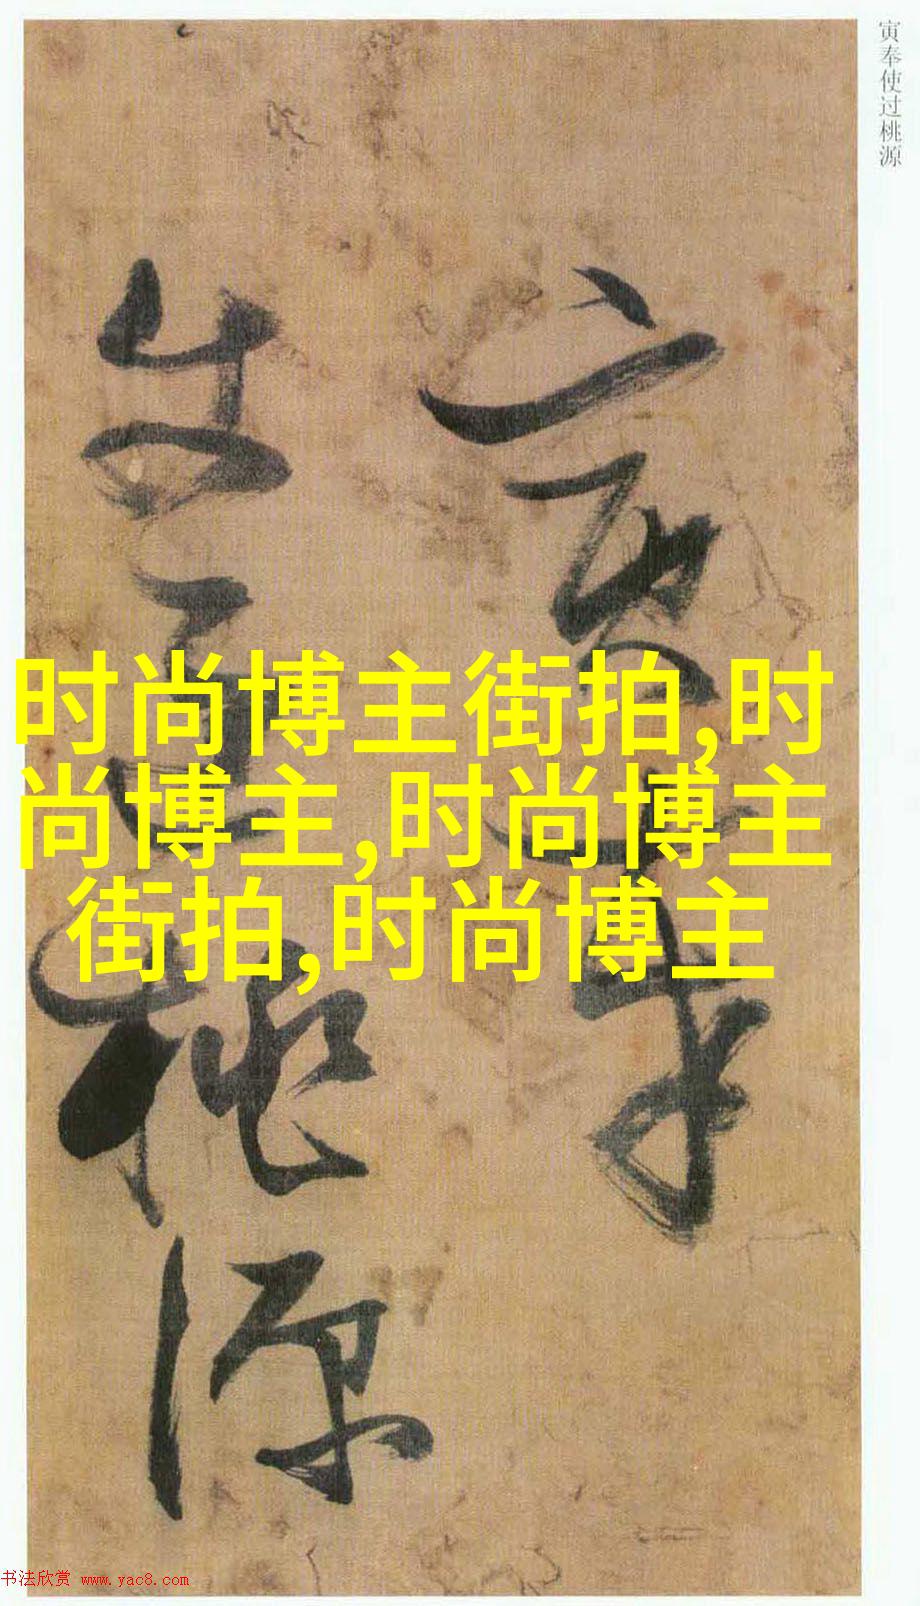 寅奉使过桃源
寅奉
使過桃源
时尚博主街拍,时
尚博主,时尚博主
街拍,时尚博主
书法欣赏 www.yac8.com